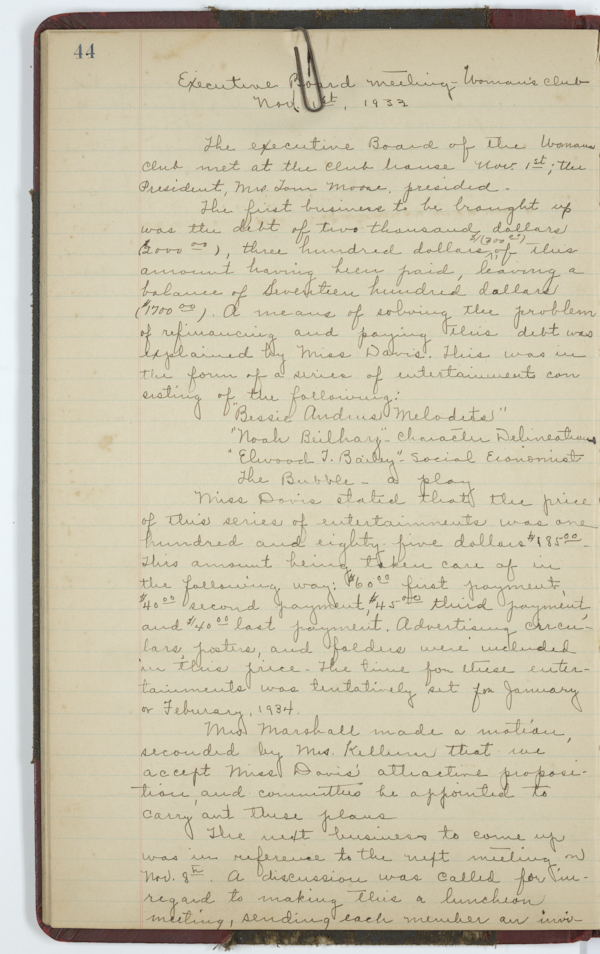 44
Executive Board meeting - Woman's Club
Nov. 1st, 1933
The executive Board of the Womans
Club met at the club house Nov. 1st; the
President, Mrs. Tom Moore, presided.
The first business to be brought up
was the debt of two thousand dollars
$(300 00)
(2000 00), three hundred dollars of this
amount having been paid, leaving a
balance of Seventeen hundred dollars
($1700 00). A means of solving the problem
of refinancing and paying this debt was
explained by Miss Davis. This was in
the form of a series of entertainments con
sisting of the following:
"Bessie Andrus Melodets"
"Noah Beilhary" - Character Delineations
"Elwood T. Bailey" - Social Economist
The Bubble - a play
Miss Davis stated that the price
of this series of entertainments was one
hundred and eighty five dollars $185 00.
This amount being taken care of in
the following way: $60 00 first payment,
$40 00 second payment, $45 00 third payment,
and $40 00 last payment. Advertising circu-
lars, posters, and folders were included
in this price. The time for these enter-
tainments was tentatively set for January
or Febursry, 1934.
Mrs. Marshall made a motion,
seconded by Mrs. Kellum that we
accept Miss Davis' attractive proposi-
tion, and committees be appointed to
carry out these plans
The next business to come up
was in reference to the next meeting on
Nov. 8th. A discussion was called for in-
regard to making this a luncheon
meeting, sending each member an invi-